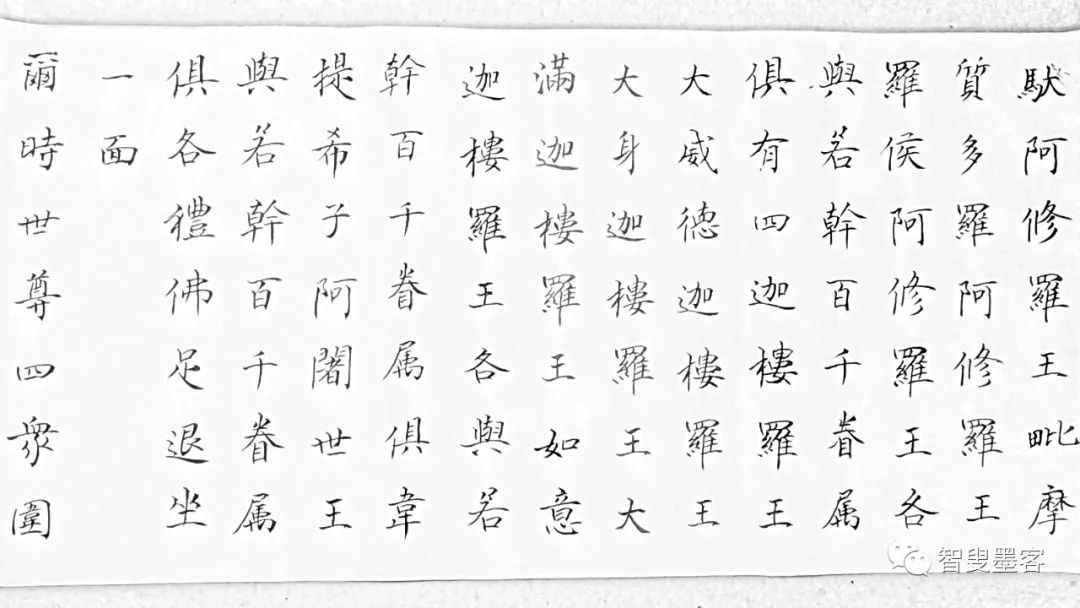 馱阿修羅王毗摩
質多羅阿修羅王
羅侯阿修羅王各
與若幹百千眷属
俱有四迦樓羅王
大威德迦樓羅王
大身迦樓羅王大
滿迦樓羅王如意
迦樓羅王各與若
幹百千眷属俱韋
提希子阿闍世王
與若幹百千眷属
俱各禮佛足退坐
一面
爾時世尊四衆圍
智叟墨客